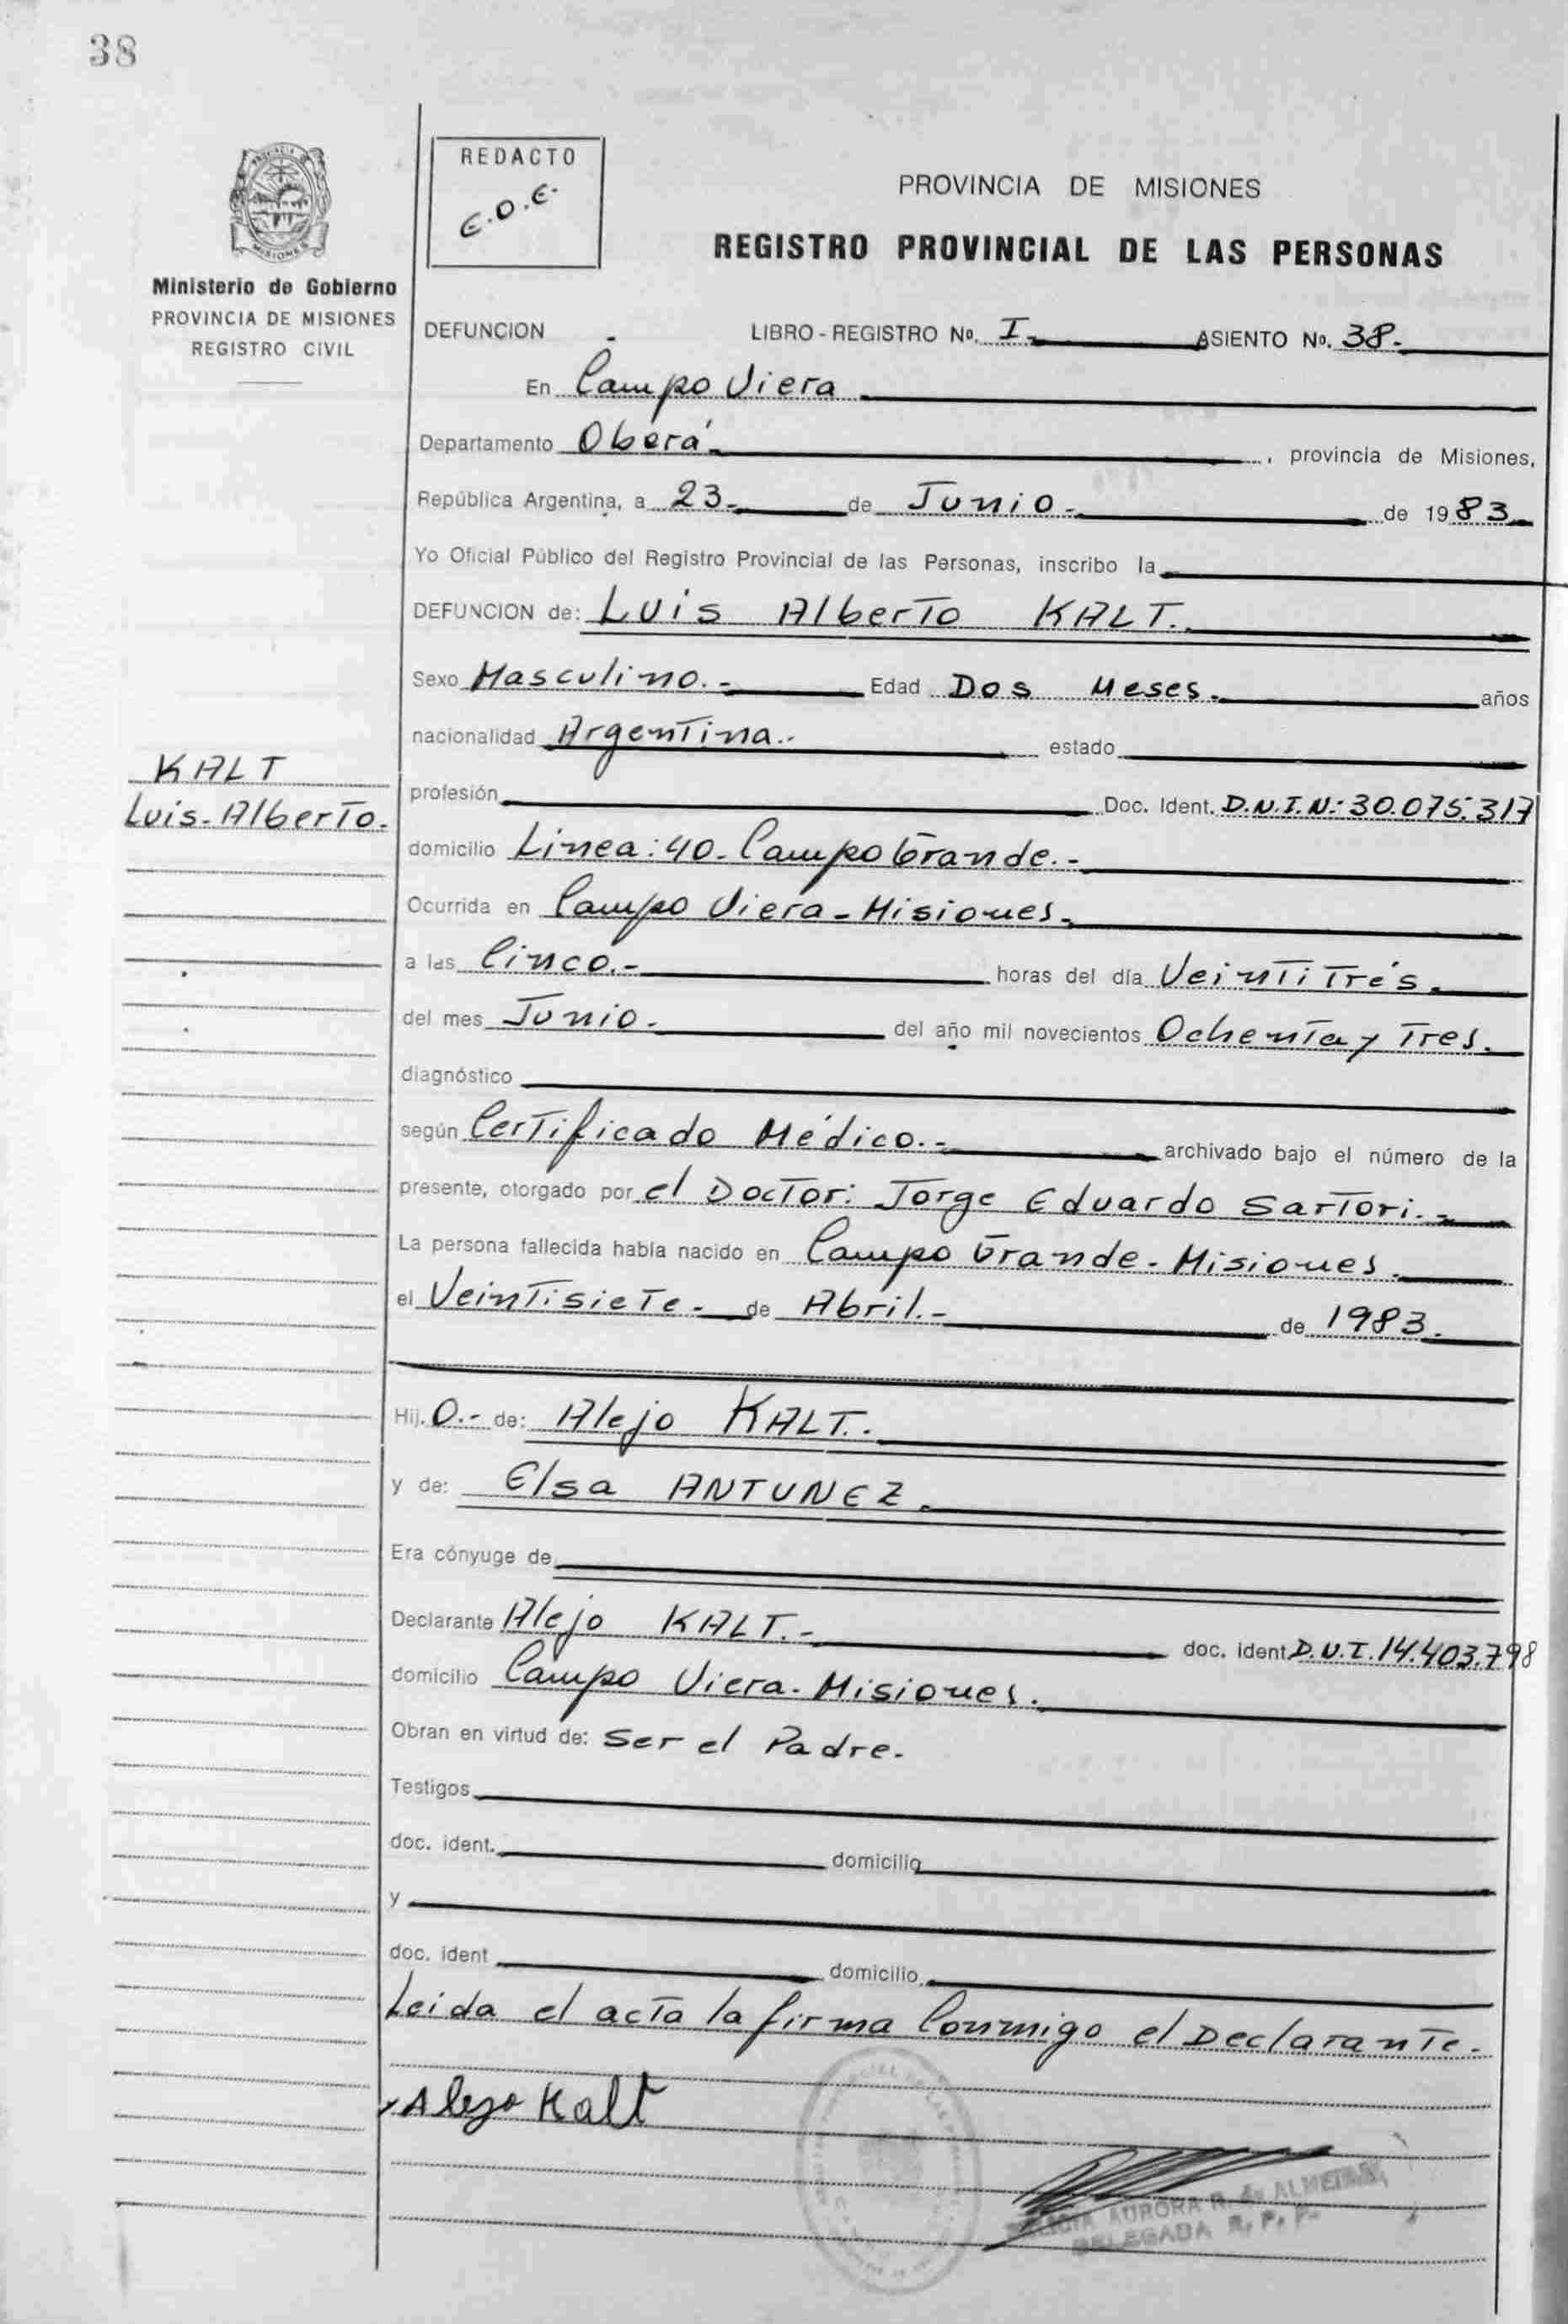 38
REDACTO
E.O.E.
PROVINCIA DE MISIONES
REGISTRO PROVINCIAL DE LAS PERSONAS
Ministerio de Gobierno
PROVINCIA DE MISIONES
REGISTRO CIVIL
DEFUNCION LIBRO - REGISTRO Nº. I ASIENTO Nº. 38.-
En Campo Viera
Departamento Oberá , provincia de Misiones,
República Argentina, a 23.- de Junio.- de 1983
Yo Oficial Público del Registro Provincial de las Personas, inscribo la
DEFUNCION de: Luis Alberto KALT.
Sexo Masculino.- Edad Dos Meses. años
nacionalidad Argentina.- estado
KALT
Luis-Alberto.
profesión Doc. Ident. D.N.I.N.: 30.075.317
domicilio Linea: 40. Campo Grande.-
Ocurrida en Campo Viera - Misiones.
a las Cinco.- horas del día Veintitrés.
del mes Junio.- del año mil novecientos Ochenta y Tres.
diagnóstico
según Certificado Médico.- archivado bajo el número de la
presente, otorgado por el Doctor: Jorge Eduardo Sartori.-
La persona fallecida había nacido en Campo Grande - Misiones.
el Veintisiete.- de Abril.- de 1983.
Hij.O.- de: Alejo KALT.
y de: Elsa ANTUNEZ.
Era cónyuge de
Declarante Alejo KALT.- doc. ident D.N.I. 14.403.798
domicilio Campo Viera - Misiones.
Obran en virtud de: Ser el Padre.
Testigos
doc. ident. domicilio
y
doc. ident domicilio.
Leida el acta la firma Conmigo el Declarante.
Alejo Kalt
AURORA R. de ALMEIDA
DELEGADA R. P. P.